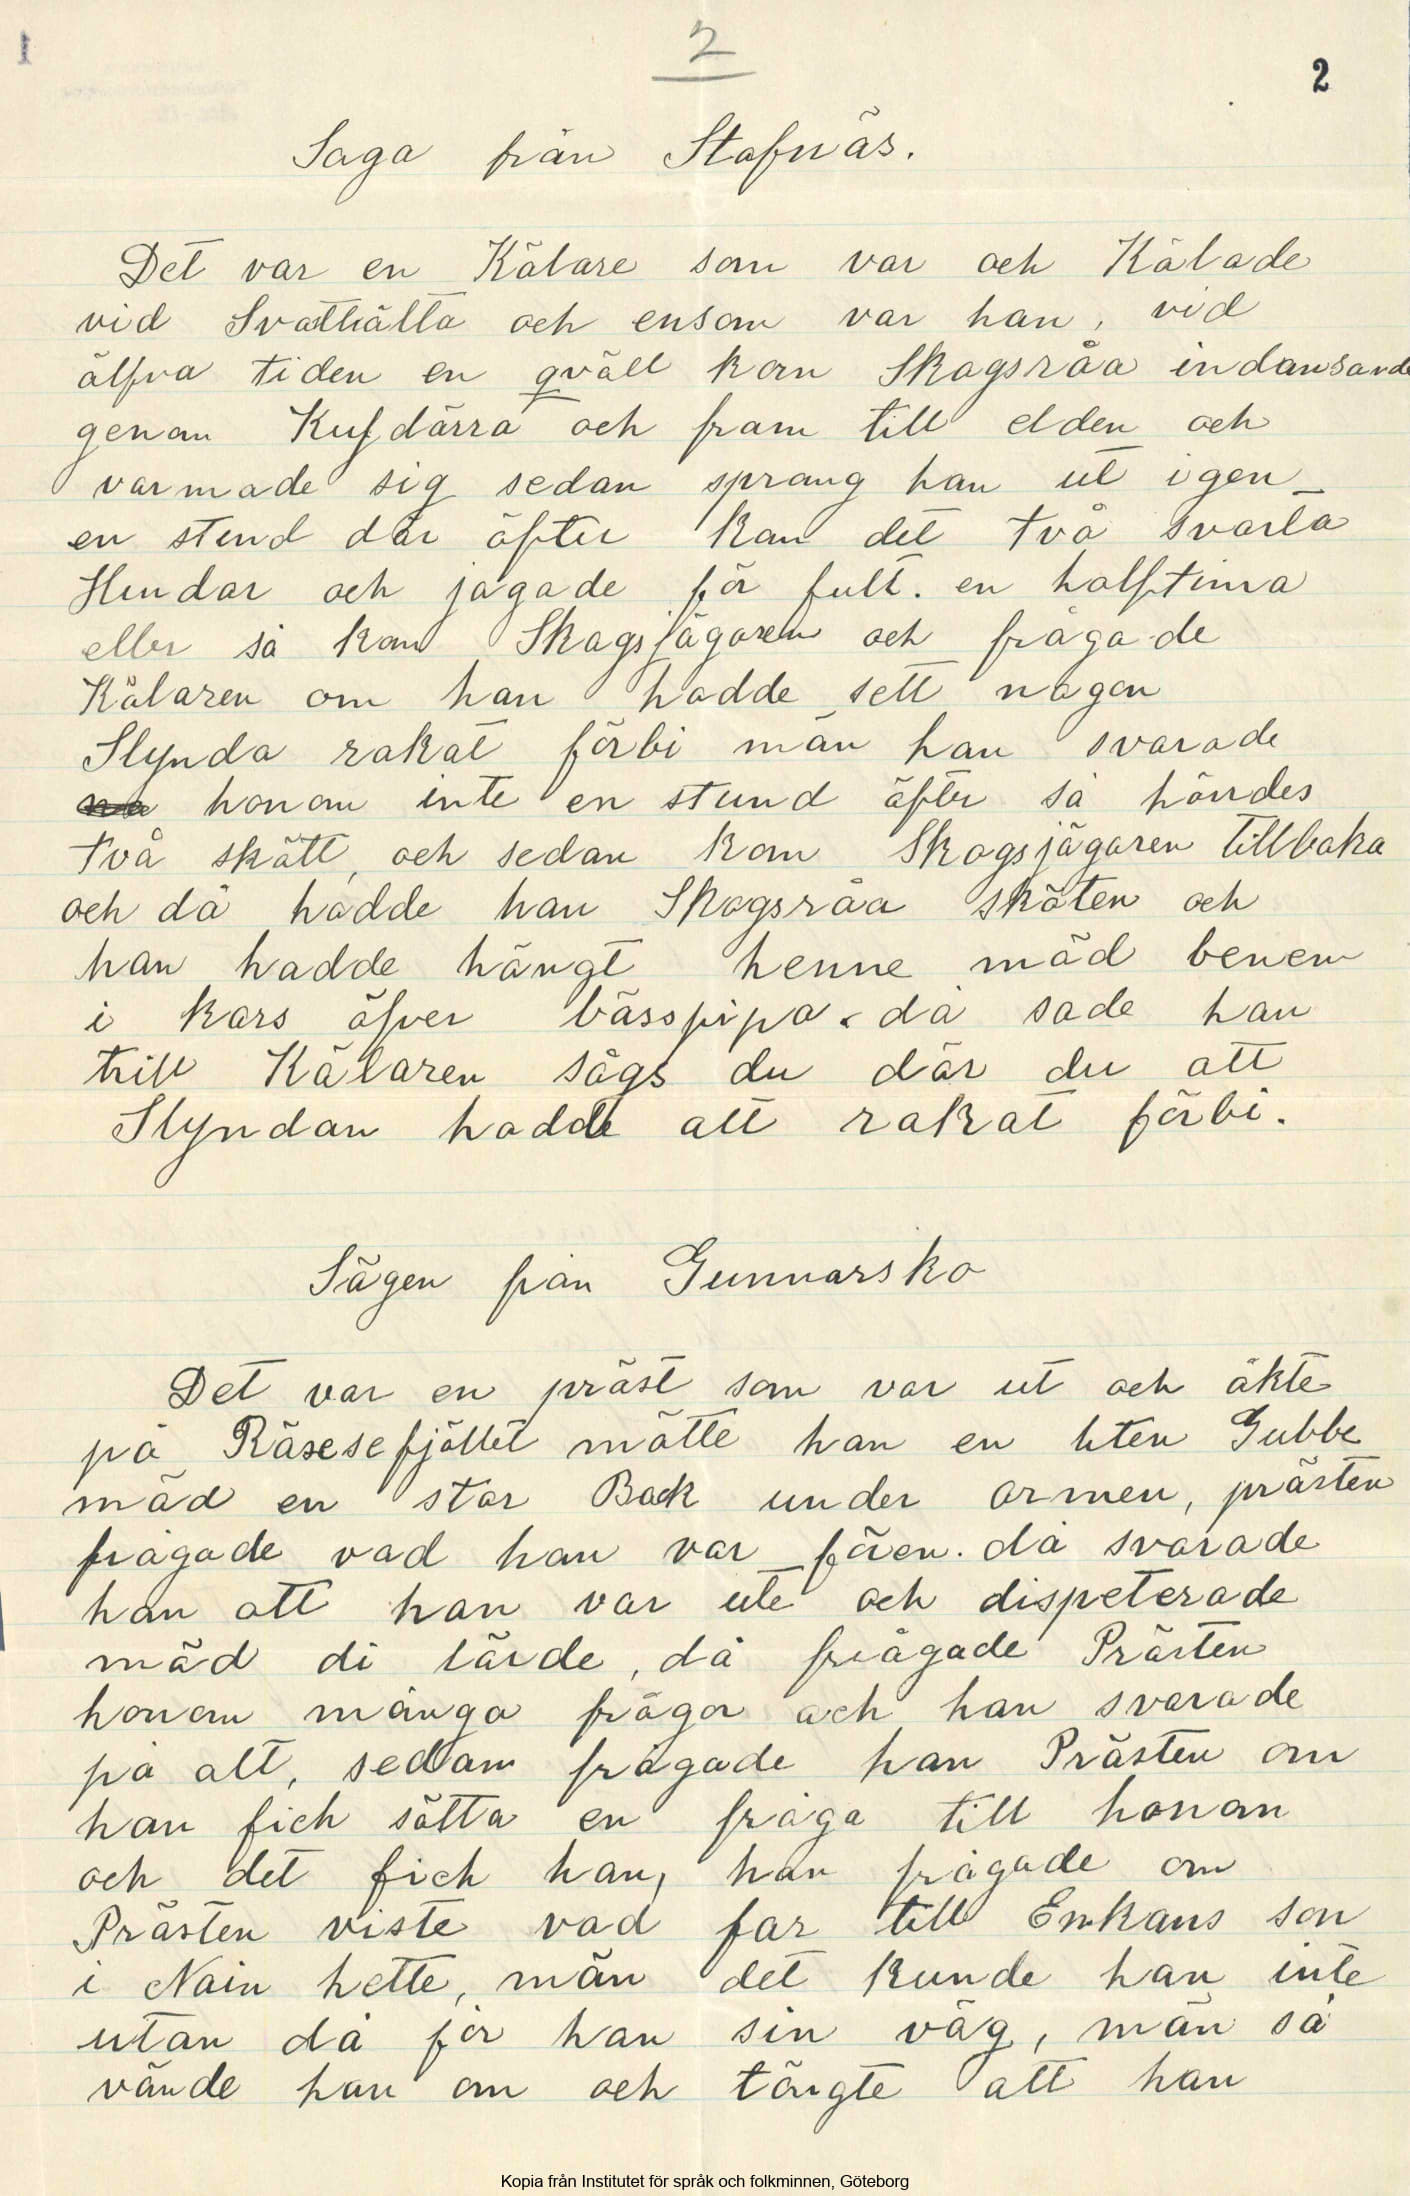 2
2
Saga från Stafnäs.
Det var en Kålare som var och Kålade
vid Svathälta och ensom var han, vid
älfva tiden en qväll kom Skogsråa indansande
genom Kufdärra och fram till elden och
varmade sig sedan sprang han ut igen
en stund där äfter kom det två svarta
Hundar och jagade för fult. en halftima
eller så kom Skogsjägaren och frågade
Kålaren om han hadde sett någon
Slynda rakat förbi män han svarade
honom inte en stund äfter så hördes
två skått, och sedan kom Skogsjägaren tillbaka
och då hadde han Skogsråa skåten och
han hadde hängt henne mäd benen
i kors öfver bösspipa. då sade han
till Kålaren sågs du där du att
Slyndan hadde att rakat förbi.
Sägen från Gunnarsko
Det var en präst som var ut och åkte
på Räsesefjället mötte han en liten Gubbe
mäd en stor Bock under armen, prästen
frågade vad han var fören. då svarade
han att han var ute och dispeterade
mäd di lärde, då frågade Prästen
honom många frågor och han svarade
på alt, sedan frågade han Prästen om
han fich sätta en fråga till honom
och det fich han, han frågade om
Prästen viste vad far till Enkans son
i Nain hette, män det kunde han inte
utan då för han sin väg, män så
vände han om och tängte att han
Kopia från Institutet för språk och folkminnen, Göteborg